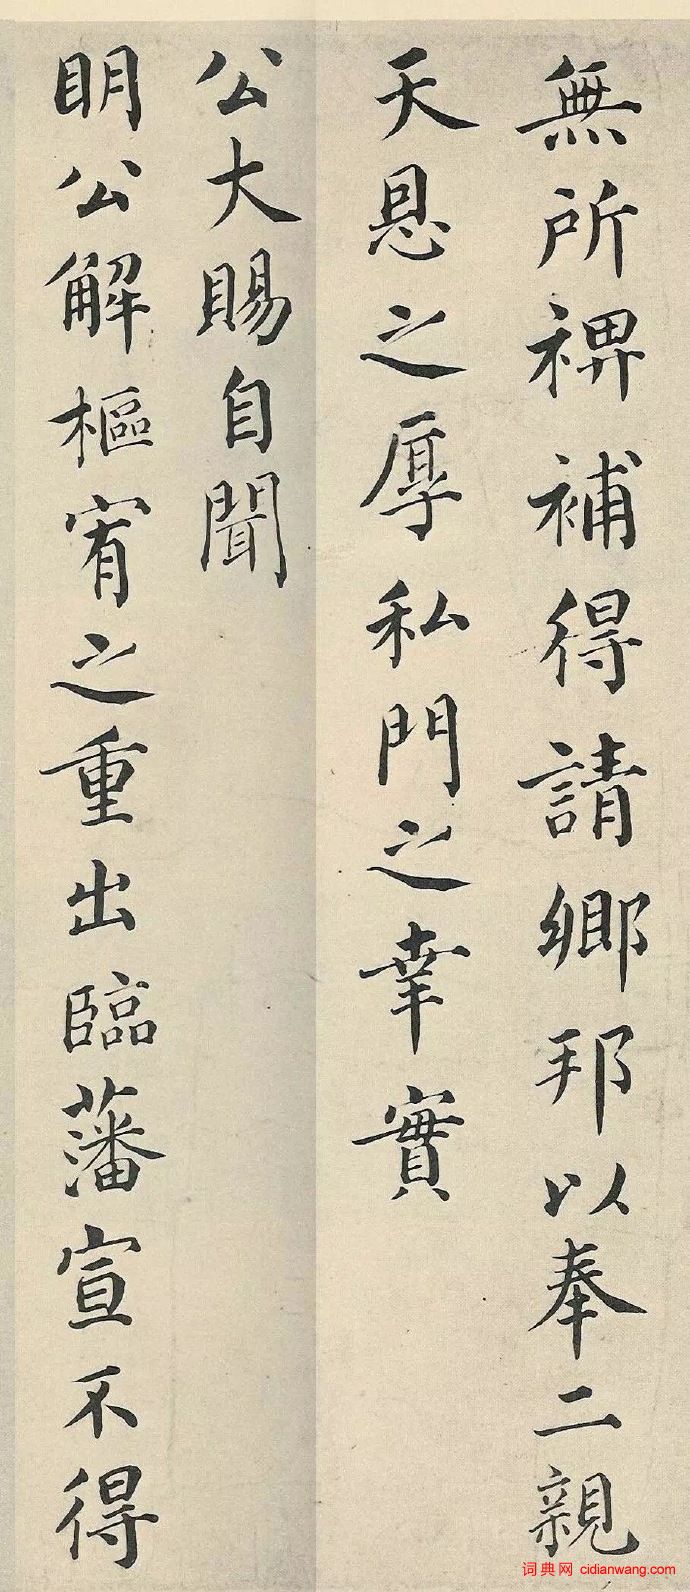 無所裨補得請鄉邦以奉二親
天恩之厚私門之幸實
公大賜自聞
明公解樞宥之重出臨藩宣不得
词典网 cidianwang.com